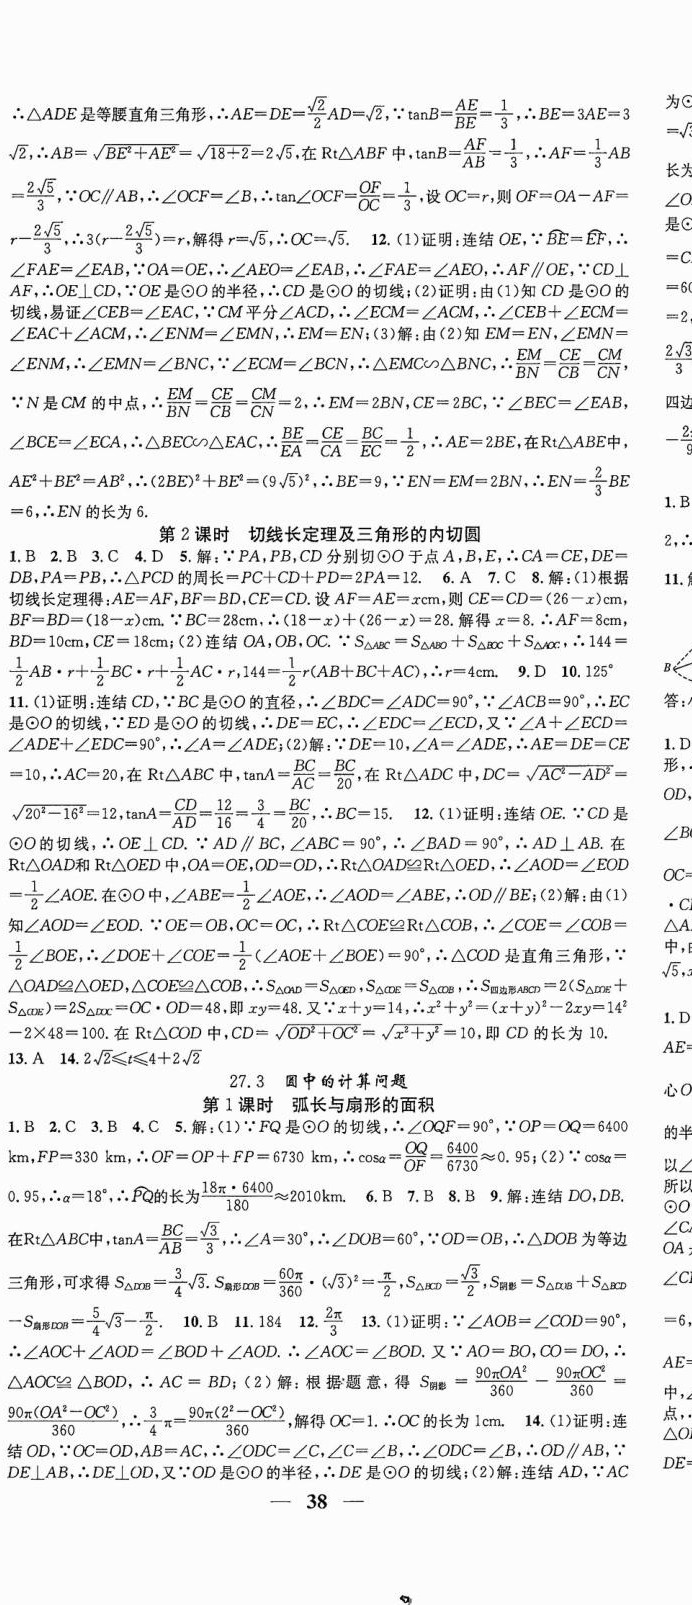 ∴△ADE是等腰直角三角形,∴AE=DE=√2/2AD=√2,∵tanB=AE/BE=1/3,∴BE=3AE=3
√2,∴AB=√(BE²+AE²)=√(18+2)=2√5,在Rt△ABF中,tanB=AF/AB=1/3,∴AF=1/3AB
=2√5/3,∵OC∥AB,∴∠OCF=∠B,∴tan∠OCF=OF/OC=1/3,设OC=r,则OF=OA−AF=
r−2√5/3,∴3(r−2√5/3)=r,解得r=√5,∴OC=√5. 12.(1)证明:连结OE,∵B͡E=E͡F,∴
∠FAE=∠EAB,∵OA=OE,∴∠AEO=∠EAB,∴∠FAE=∠AEO,∴AF∥OE,∵CD⊥
AF,∴OE⊥CD,∵OE是⊙O的半径,∴CD是⊙O的切线;(2)证明:由(1)知CD是⊙O的
切线,易证∠CEB=∠EAC,∵CM平分∠ACD,∴∠ECM=∠ACM,∴∠CEB+∠ECM=
∠EAC+∠ACM,∴∠ENM=∠EMN,∴EM=EN;(3)解:由(2)知EM=EN,∠EMN=
∠ENM,∴∠EMN=∠BNC,∵∠ECM=∠BCN,∴△EMC∽△BNC,∴EM/BN=CE/CB=CM/CN,
∵N是CM的中点,∴EM/BN=CE/CB=CM/CN=2,∴EM=2BN,CE=2BC,∵∠BEC=∠EAB,
∠BCE=∠ECA,∴△BEC∽△EAC,∴BE/EA=CE/CA=BC/EC=1/2,∴AE=2BE,在Rt△ABE中,
AE²+BE²=AB²,∴(2BE)²+BE²=(9√5)²,∴BE=9,∵EN=EM=2BN,∴EN=2/3BE
=6,∴EN的长为6.
第2课时 切线长定理及三角形的内切圆
1.B 2.B 3.C 4.D 5.解:∵PA,PB,CD分别切⊙O于点A,B,E,∴CA=CE,DE=
DB,PA=PB,∴△PCD的周长=PC+CD+PD=2PA=12. 6.A 7.C 8.解:(1)根据
切线长定理得:AE=AF,BF=BD,CE=CD.设AF=AE=xcm,则CE=CD=(26−x)cm,
BF=BD=(18−x)cm.∵BC=28cm,∴(18−x)+(26−x)=28.解得x=8.∴AF=8cm,
BD=10cm,CE=18cm;(2)连结OA,OB,OC.∵S△ABC=S△ABO+S△BOC+S△AOC,∴144=
1/2AB·r+1/2BC·r+1/2AC·r,144=1/2r(AB+BC+AC),∴r=4cm. 9.D 10.125°
11.(1)证明:连结CD,∵BC是⊙O的直径,∴∠BDC=∠ADC=90°,∵∠ACB=90°,∴EC
是⊙O的切线,∵ED是⊙O的切线,∴DE=EC,∴∠EDC=∠ECD,又∵∠A+∠ECD=
∠ADE+∠EDC=90°,∴∠A=∠ADE;(2)解:∵DE=10,∠A=∠ADE,∴AE=DE=CE
=10,∴AC=20,在Rt△ABC中,tanA=BC/AC=BC/20,在Rt△ADC中,DC=√(AC²−AD²)=
√(20²−16²)=12,tanA=CD/AD=12/16=3/4=BC/20,∴BC=15. 12.(1)证明:连结OE.∵CD是
⊙O的切线,∴OE⊥CD.∵AD∥BC,∠ABC=90°,∴∠BAD=90°,∴AD⊥AB.在
Rt△OAD和Rt△OED中,OA=OE,OD=OD,∴Rt△OAD≌Rt△OED,∴∠AOD=∠EOD
=1/2∠AOE.在⊙O中,∠ABE=1/2∠AOE,∴∠AOD=∠ABE,∴OD∥BE;(2)解:由(1)
知∠AOD=∠EOD.∵OE=OB,OC=OC,∴Rt△COE≌Rt△COB,∴∠COE=∠COB=
1/2∠BOE,∴∠DOE+∠COE=1/2(∠AOE+∠BOE)=90°,∴△COD是直角三角形,∵
△OAD≌△OED,△COE≌△COB,∴S△OAD=S△OED,S△COE=S△COB,∴S四边形ABCD=2(S△DOE+
S△COE)=2S△DOC=OC·OD=48,即xy=48.又∵x+y=14,∴x²+y²=(x+y)²−2xy=14²
−2×48=100.在Rt△COD中,CD=√(OD²+OC²)=√(x²+y²)=10,即CD的长为10.
13.A 14.2√2≤t≤4+2√2
27.3 圆中的计算问题
第1课时 弧长与扇形的面积
1.B 2.C 3.B 4.C 5.解:(1)∵FQ是⊙O的切线,∴∠OQF=90°,∵OP=OQ=6400
km,FP=330 km,∴OF=OP+FP=6730 km,∴cosα=OQ/OF=6400/6730≈0.95;(2)∵cosα=
0.95,∴α=18°,∴P͡Q的长为18π·6400/180≈2010km. 6.B 7.B 8.B 9.解:连结DO,DB.
在Rt△ABC中,tanA=BC/AB=√3/3,∴∠A=30°,∴∠DOB=60°,∵OD=OB,∴△DOB为等边
三角形,可求得S△DOB=3/4√3.S扇形DOB=60π/360·(√3)²=π/2,S△BCD=√3/2,S阴影=S△DOB+S△BCD
−S扇形DOB=5/4√3−π/2. 10.B 11.184 12.2π/3 13.(1)证明:∵∠AOB=∠COD=90°,
∴∠AOC+∠AOD=∠BOD+∠AOD.∴∠AOC=∠BOD.又∵AO=BO,CO=DO,∴
△AOC≌△BOD,∴AC=BD;(2)解:根据题意,得S阴影=90πOA²/360−90πOC²/360=
90π(OA²−OC²)/360,∴3/4π=90π(2²−OC²)/360,解得OC=1.∴OC的长为1cm. 14.(1)证明:连
结OD,∵OC=OD,AB=AC,∴∠ODC=∠C,∠C=∠B,∴∠ODC=∠B,∴OD∥AB,∵
DE⊥AB,∴DE⊥OD,又∵OD是⊙O的半径,∴DE是⊙O的切线;(2)解:连结AD,∵AC
— 38 —